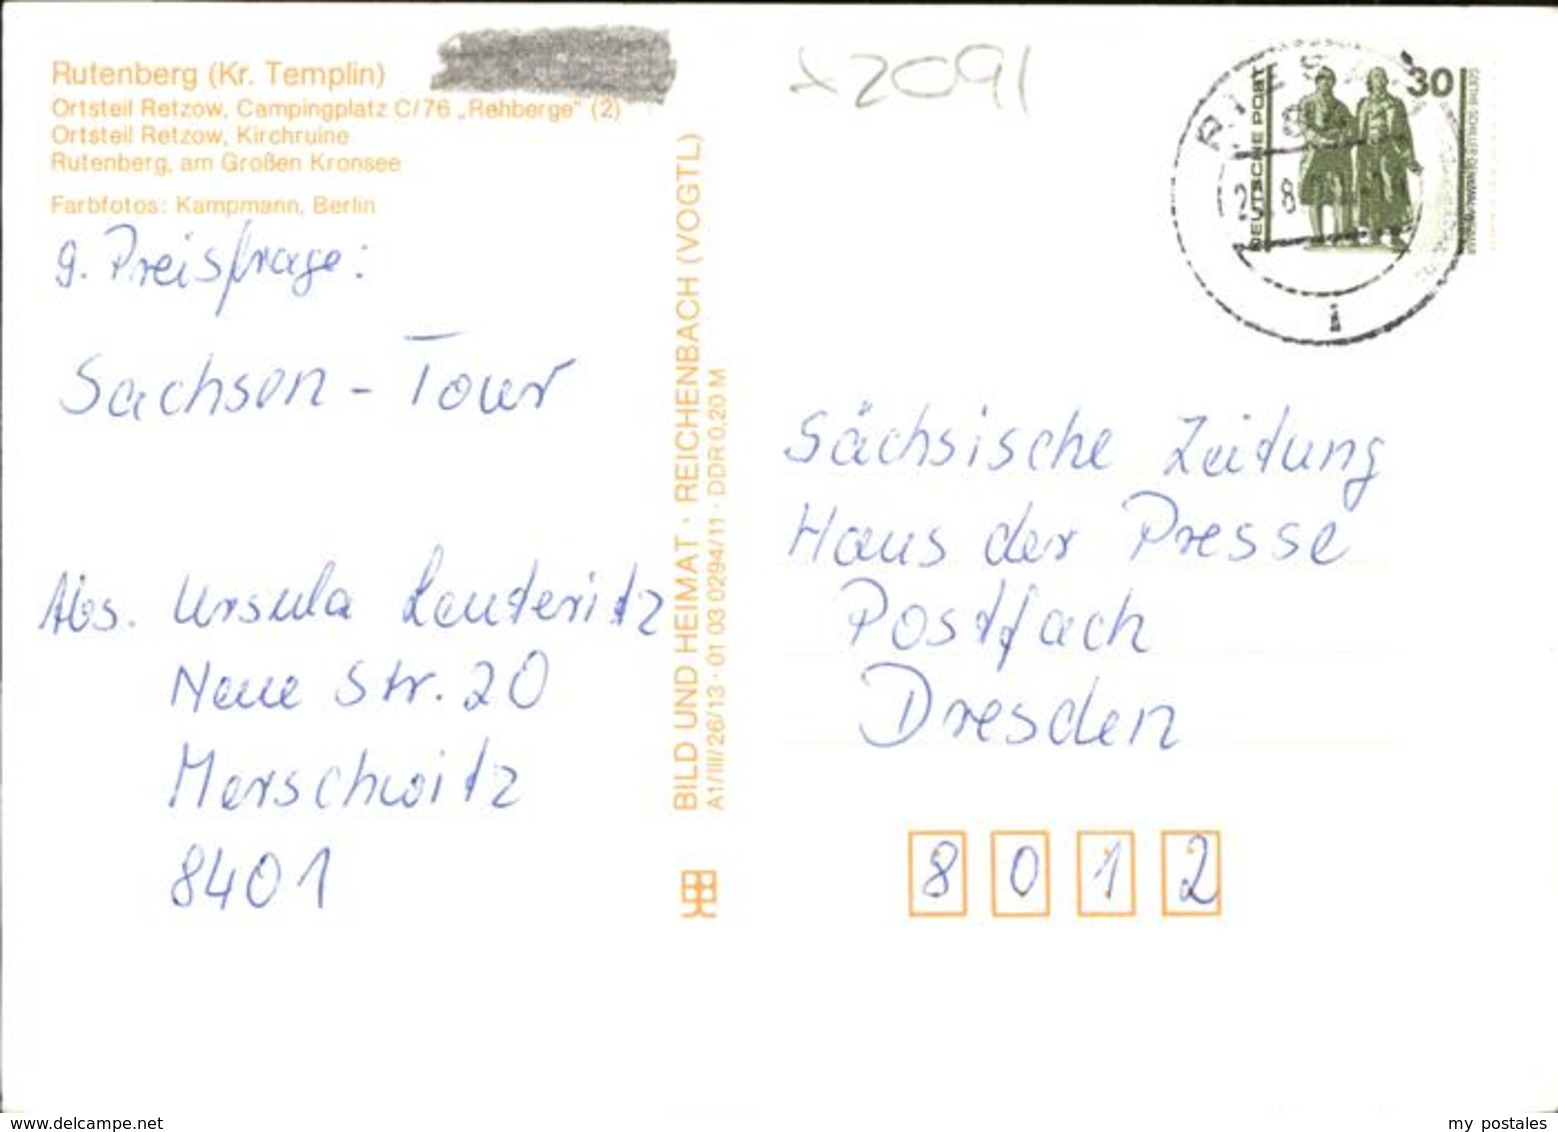 Rutenberg (Kr. Templin)
Ortsteil Retzow, Campingplatz C/76 „Rehberge" (2)
Ortsteil Retzow, Kirchruine
Rutenberg, am Großen Kronsee
Farbfotos: Kampmann, Berlin
g. Preisfrage:
Sachsen - Tour
Abs. Ursula Lauteritz
Neue Str. 20
Merschwitz
8401
BILD UND HEIMAT · REICHENBACH (VOGTL)
A1/III/26/13 · 01 03 0294/11 · DDR 0,20 M
x2091
RIES
25. 8
i
30
DEUTSCHE POST
GOETHE-SCHILLER-DENKMAL·WEIMAR
Sächsische Zeitung
Haus der Presse
Postfach
Dresden
8 0 1 2
www.delcampe.net
my postales